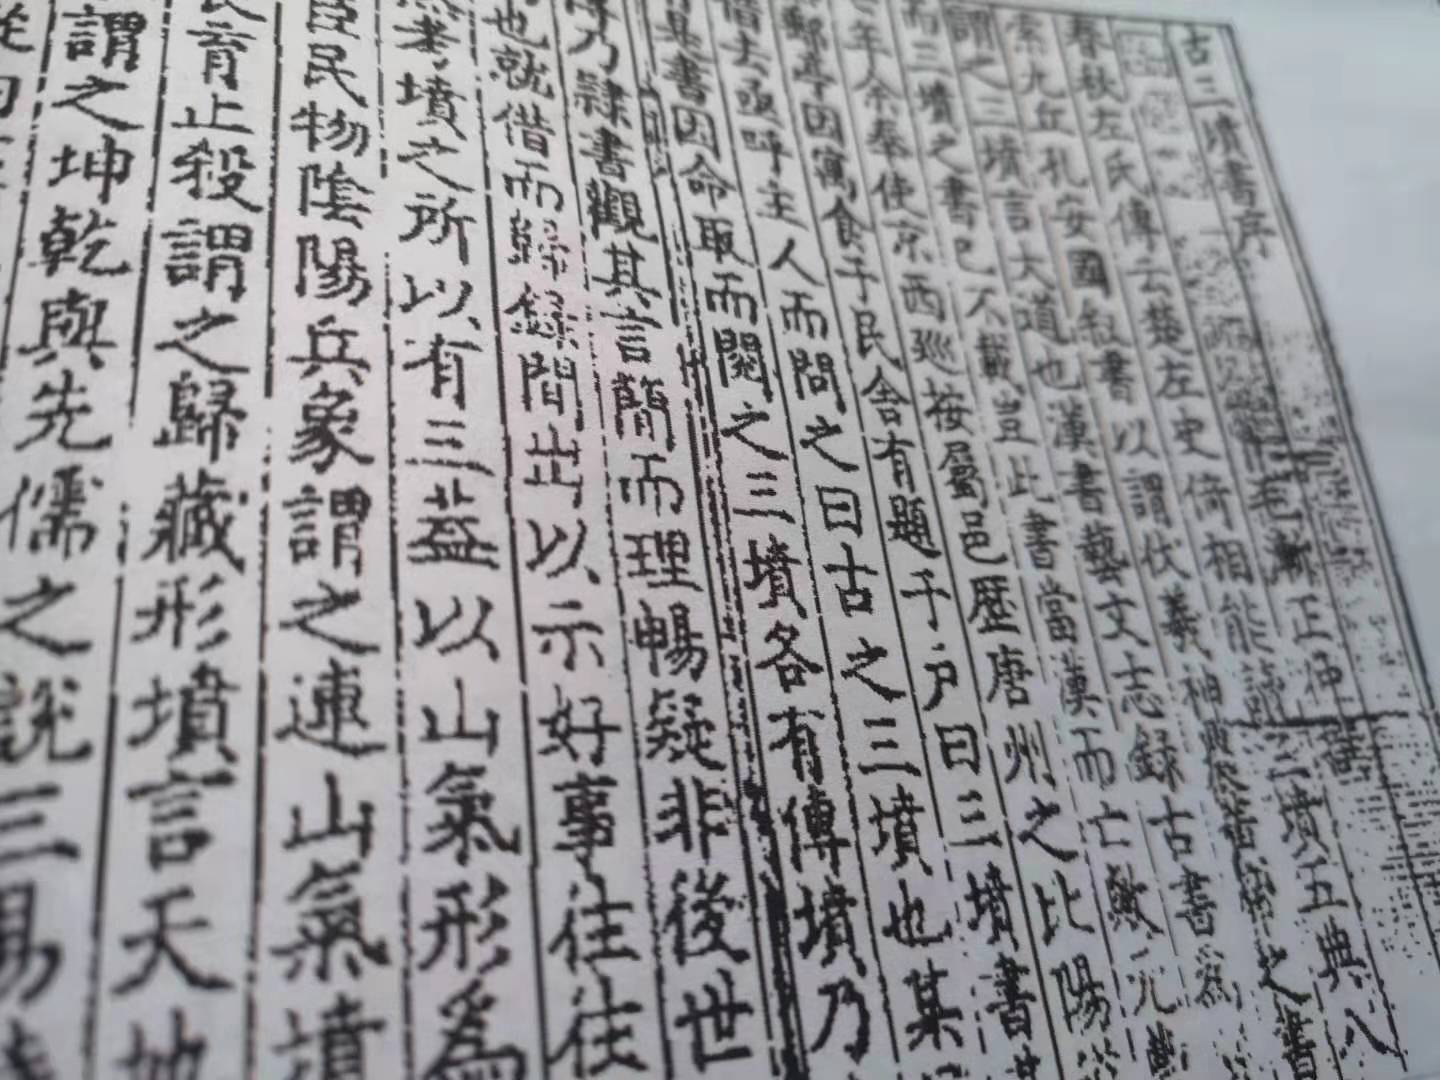 古三墳書序
毛漸正仲撰
春秋左氏傳云楚左史倚相能讀三墳五典八
索九丘孔安國叙書以謂伏羲神農黃帝之書
謂之三墳言大道也漢書藝文志錄古書爲
而三墳之書已不載豈此書當漢而亡歟元豐
七年余奉使京西巡按屬邑歷唐州之比陽
郵亭因寓食于民舍有題于戶曰三墳書
借去亟呼主人而問之曰古之三墳也某
有其書因命取而閱之三墳各有傳墳乃
傳乃隸書觀其言簡而理暢疑非後世
也就借而歸錄間出以示好事往往
考墳之所以有三蓋以山氣形爲
臣民物陰陽兵象謂之連山氣墳
長育止殺謂之歸藏形墳言天地
謂之坤乾與先儒之說三易